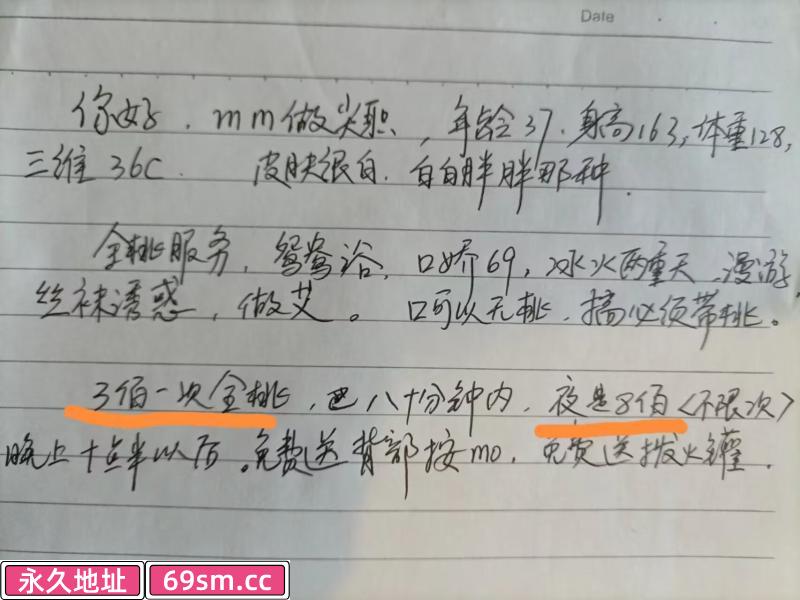 Date
你好．mm做尖职，年龄37．身高163，体重128，
三维36C．皮肤很白．白白胖胖那种．
全桃服务，鸳鸯浴，口娇69，冰火两重天．漫游
丝袜诱惑，做艾。口可以无桃．搞必须带桃。
3佰一次全桃，八十分钟内．夜是8佰〈不限次〉
晚上十点半以后。免费送背部按mo．免费送拔火罐．
永久地址 69sm.cc